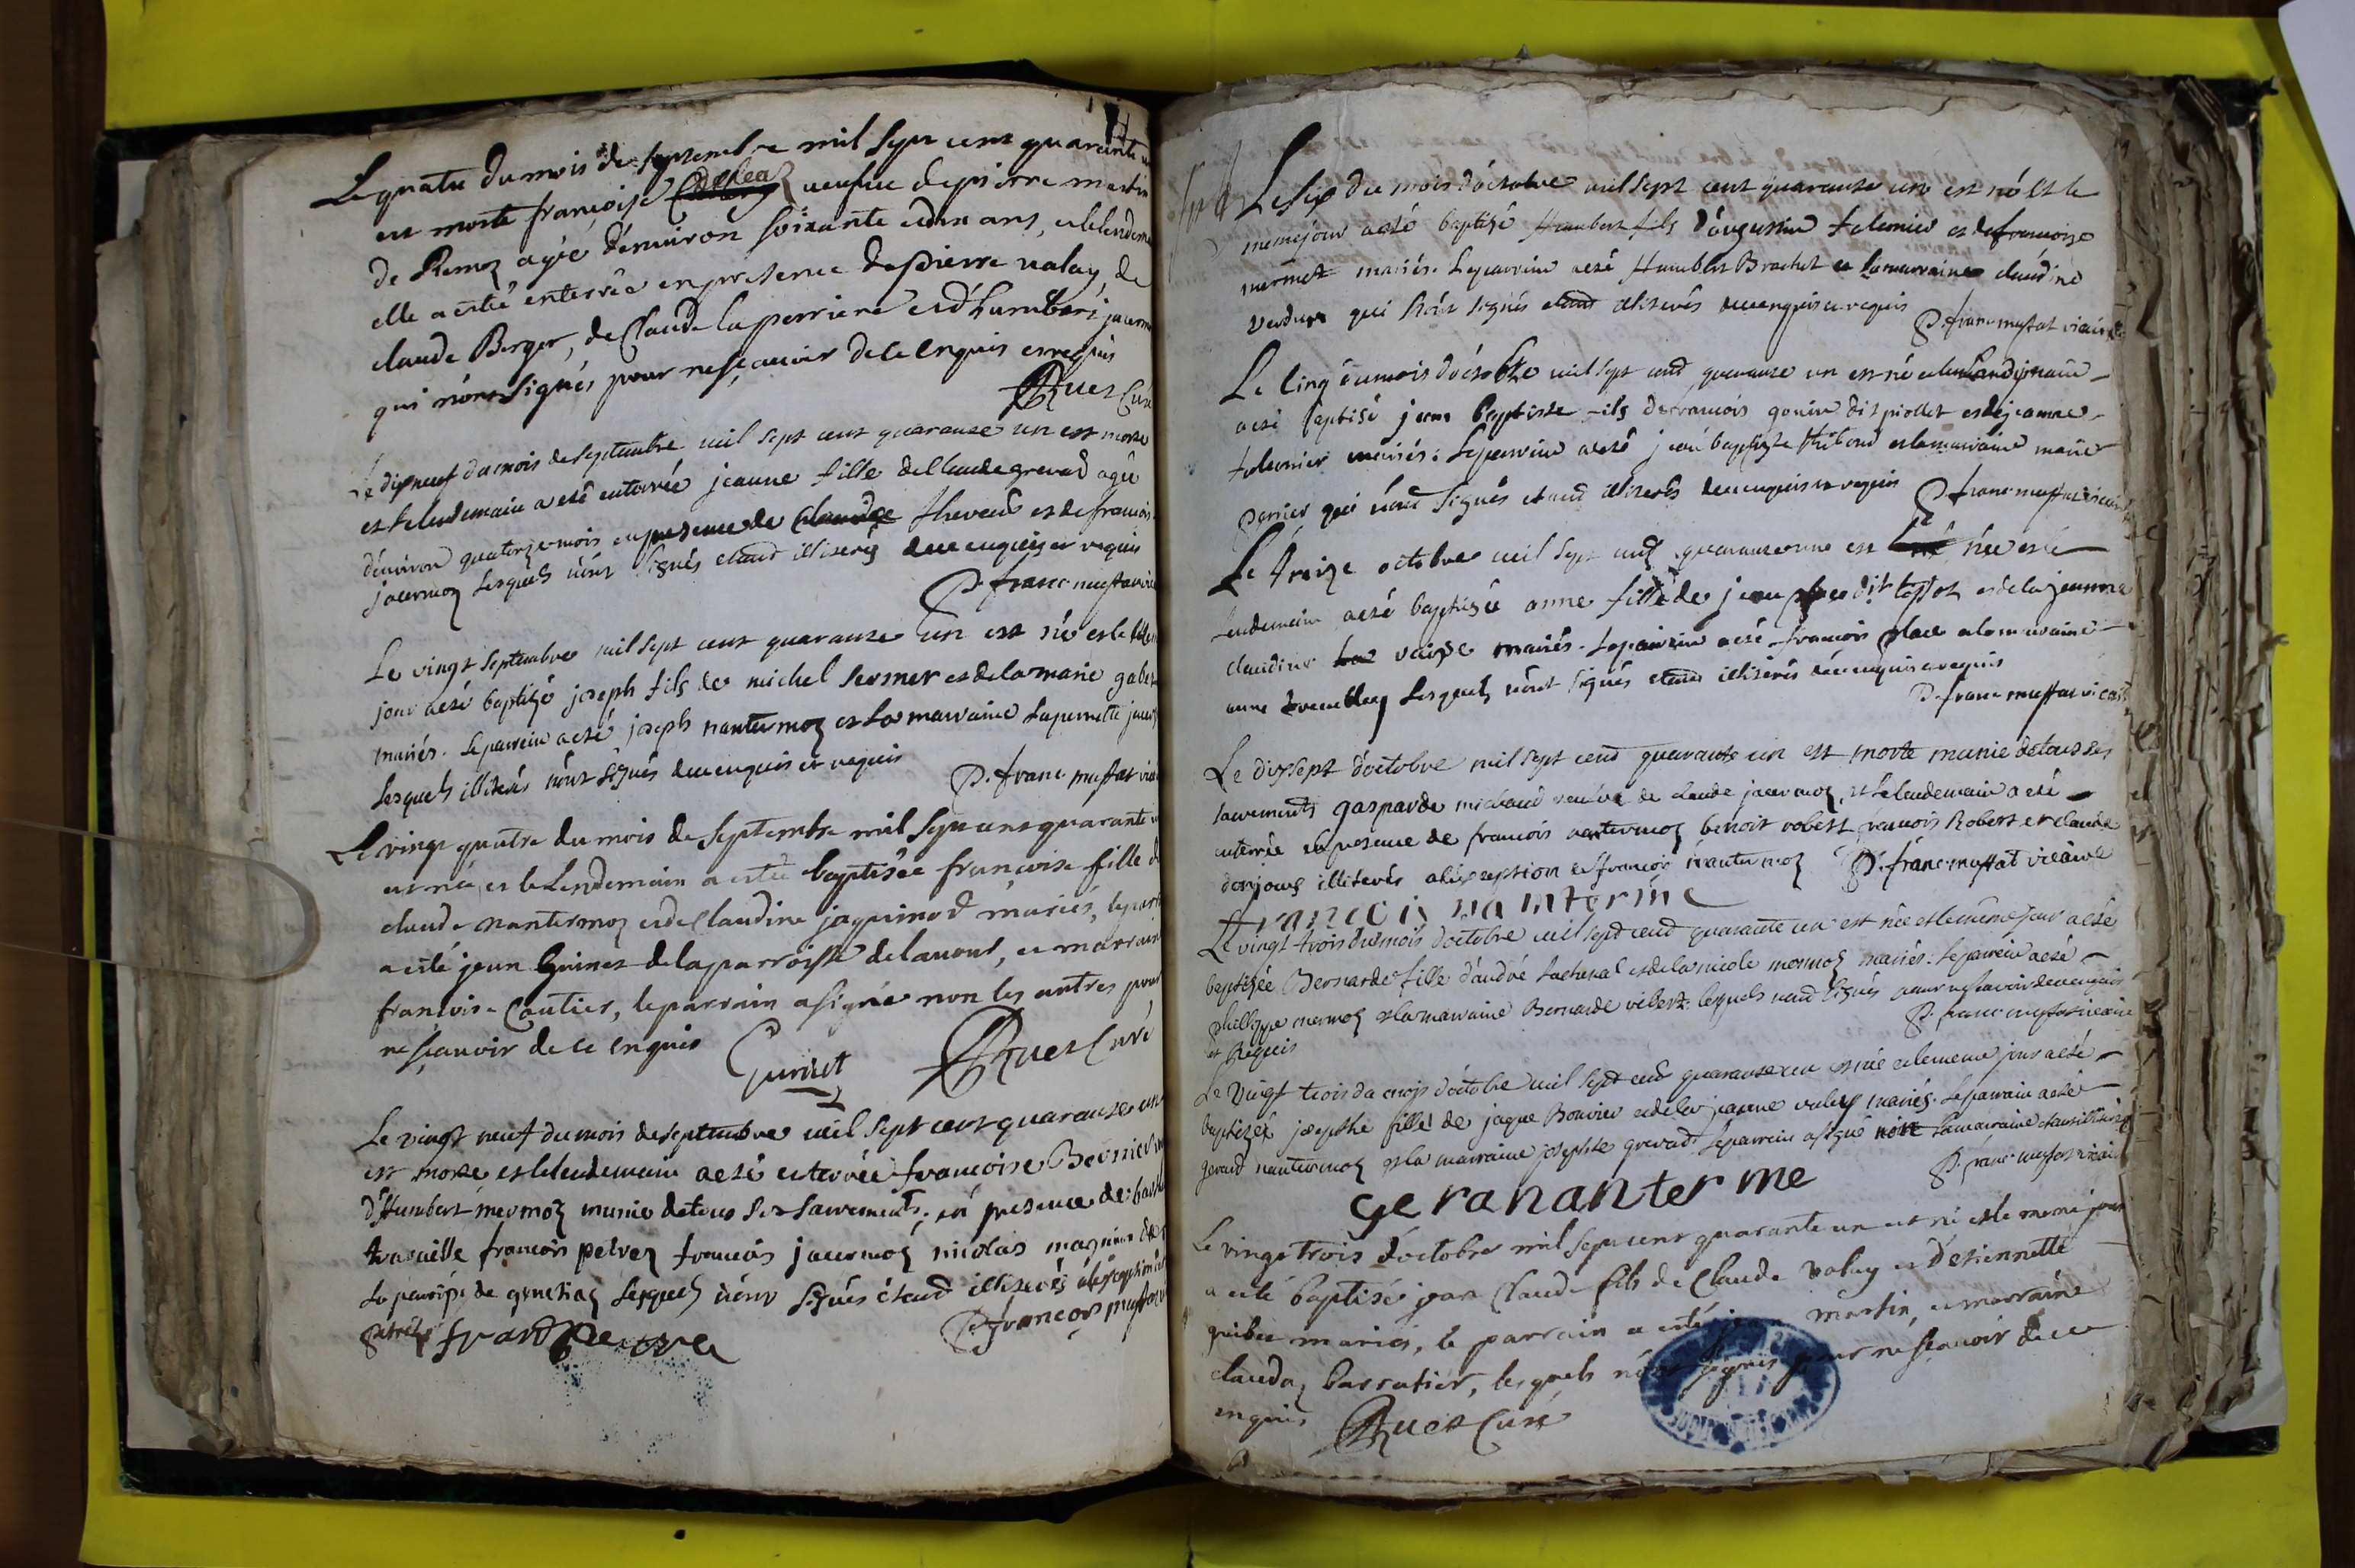 Le quatre du mois de septembre mil sept cent quarante
est morte françoise veufue de pierre martin
de Remoz agée d'environ soixante et dix ans, et le lendem
elle a esté enterrée en presence de pierre valay, de
claude Berger, de Claude la perriere et d'humbert jacerm
qui n'ont signés pour ne sçauoir de ce enquis et requis
Ruet Curé
Le dixneuf du mois de septembre mil sept cent quarante un est morte
et le lendemain a eté enterrée jeanne fille de Claude grevad agée
d'environ quatorze mois en presence de Claudge thevend et de francois
jacermoz lesquels n'ont signés etant illiterés de ce enquis et requis
P. franc muffat vic
Le vingt septembre mil sept cent quarante un est né et le
jour a eté baptizé joseph fils de michel sermer et de la marie gabe
mariés. Le parrein a eté joseph nantermoz et la marraine La pernette jacer
lesquels illiterés n'ont signés de ce enquis et requis
P. franc muffat vic
Le vingt quatre du mois de septembre mil sept cent quarante
est née et le Lendemain a esté baptisée françoise fille d
claude nantermoz et de Claudine jaquimod mariés, le parr
a esté jean Guinet de la parroisse de lanont, et marrain
françoise Coutier, le parrain a signé non les autres pour
ne sçauoir de ce enquis
Guinet Ruet Curé
Le vingt neuf du mois de septembre mil sept cent quarante un
est morte et le lendemain a eté enterrée francoise Bernier
d'Humbert mermoz munie de tous ses sacrements, en presence de
francois petrez francois jacermoz nicolas magnin
La paroisse de lesquels n'ont signés étand illiterés a l'exception
petrez P. francois muffat
Le six du mois d'octobre mil sept cent quarante un est né et le
meme jour a eté baptizé Humbert fils d'augustin folernier et de francoize
mermet mariés. Le parrein a eté Humbert Brachet et la marraine claudine
qui n'ont signés etand illiterés de ce enquis et requis
P. franc muffat vicaire
Le cinq du mois d'octobre mil sept cend quarante un est né et le Landemain
a eté baptisé jean baptiste fils de francois gonin dit piollet et de jeanne
folernier mariés. Le parrein a eté jean baptiste thibond et la marraine marie
perrier qui n'ont signés etand illiterés de ce enquis et requis P. franc muffat vicair
Le treize octobre mil sept cend quarante une est née et le
lendemain a eté baptisée anne fille de jean place dit tossot et de la jeanne
claudine mariés. Le parrein a eté francois place et la marraine
anne lesquels n'ont signés etand illiterés de ce enquis et requis
P. franc muffat vicaire
Le dixsept d'octobre mil sept cend quarante un est morte munie de tous ses
sacrements gasparde michaud veufve de claude jacermoz, et le lendemain a eté
enterrée en presence de francois nantermoz benoit robert francois Robert et claude
donjoux illiterés a l'exception de francois nantermoz P. franc. muffat vicaire
francois nanterme
Le vingt trois du mois d'octobre mil sept cend quarante un est née et le même jour a eté
baptizée Bernarde fille d'andré lacheral et de la nicole mermoz mariés. Le parrein a eté
phillippe mermoz et la marraine Bernarde vibert. lesquels n'ont signés pour ne savoir de ce enquis
et Requis P. franc muffat vicaire
Le Vingt trois du mois d'octobre mil sept cend quarante un est née et le meme jour a eté
baptizée josepthe fille de jaque Bouvier et de la jeanne valay mariés. Le parrain a eté
gerard nantermoz et la marraine josepthe grevad. Le parrein a signé non la marraine étand illiterée
P. franc muffat vicair
geranan ter me
Le vingt trois d'octobre mil sept cent quarante un est né et le meme jour
a esté baptisé jean Claude fils de Claude valay et d'etiennette
mariés, le parrain a esté jean martin, et marraine
claudaz barratier, lesquels n'ont signés pour ne sçauoir de ce
enquis Ruet Curé